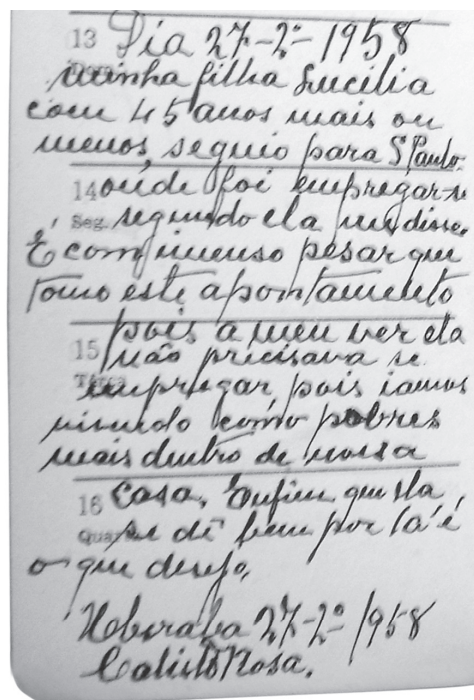 13 Dia 27-2º-1958
minha filha Lucilia
com 45 anos mais ou
menos, seguio para S Paulo.
14 onde foi empregar-se
Seg. segundo ela me disse.
É com imenso pesar que
tomo este apontamento
pois a meu ver ela
15 não precisava se
Terça
empregar, pois iamos
vivendo como pobres
mais dentro de nossa
16 casa. Enfim que ela
Quarta se dê bem por lá é
o que desejo.
Uberaba 27-2º/958
Calisto Rosa.